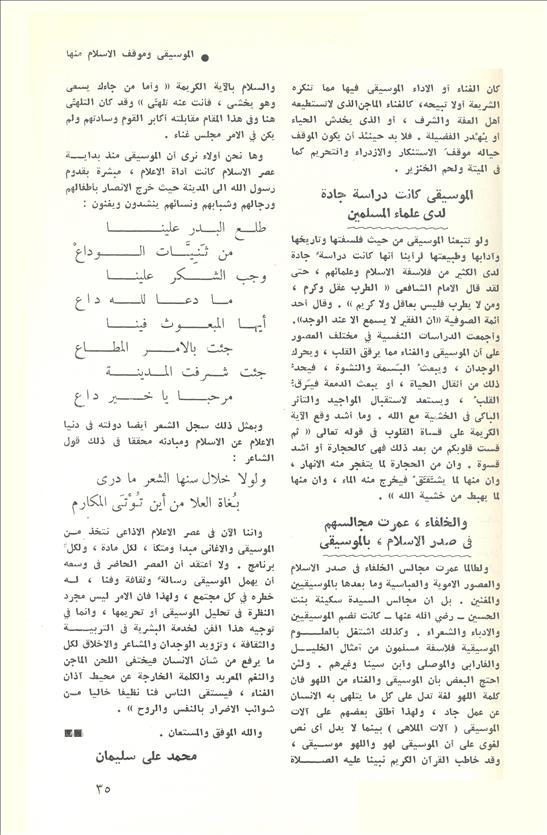 ● الموسيقى وموقف الاسلام منها
كان الغناء أو الاداء الموسيقى فيها مما تنكره
الشريعة أولا تبيحه، كالغناء الماجن الذى لاتستطيعه
أهل العفة والشرف ، أو الذى يخدش الحياء
أو يُهدر الفضيلة . فلا بد حينئذ أن يكون الموقف
حياله موقفَ الاستنكار والازدراء والتحريم كما
فى الميتة ولحم الخنزير .
الموسيقى كانت دراسة جادة
لدى علماء المسلمين
ولو تتبعنا الموسيقى من حيث فلسفتها وتاريخها
وآدابها وطبيعتها لرأينا أنها كانت دراسةً جادة
لدى الكثير من فلاسفة الاسلام وعلمائهم ، حتى
لقد قال الامام الشافعى « الطرب عقل وكرم ،
ومن لا يطرب فليس بعاقل ولا كريم » . وقال أحد
أئمة الصوفية «ان الفقير لا يسمع الا عند الوجد».
وأجمعت الدراسات النفسية فى مختلف العصور
على أن الموسيقى والغناء مما يرقق القلب ، ويحرك
الوجدان ، ويبعثُ البَسمة والنشوة ، فيحدُّ
ذلك من أثقال الحياة ، أو يبعث الدمعة فيَرقُّ
القلبُ ، ويستعد لاستقبال المواجيد والتأثر
الباكى فى الخشية مع الله . وما أشد وقع الآية
الكريمة على قساة القلوب فى قوله تعالى « ثم
قست قلوبكم من بعد ذلك فهى كالحجارة أو أشد
قسوة . وان من الحجارة لما يتفجر منه الانهار ،
وان منها لما يشَّقَّقُ فيخرج منه الماء ، وان منها
لما يهبط من خشية الله » .
والخلفاء ، عمرت مجالسهم
فى صدر الاسلام ، بالموسيقى
ولطالما عمرت مجالس الخلفاء فى صدر الاسلام
والعصور الاموية والعباسية وما بعدها بالموسيقيين
والمغنين . بل ان مجالس السيدة سكينة بنت
الحسين ـ رضى الله عنها ـ كانت تضم الموسيقيين
والادباء والشعراء . وكذلك اشتغل بالعلـــوم
الموسيقية فلاسفة مسلمون من أمثال الخليـــل
والفارابى والموصلى وابن سينا وغيرهم . ولئن
احتج البعض بأن الموسيقى والغناء من اللهو فان
كلمة اللهو لغة تدل على كل ما يتلهى به الانسان
عن عمل جاد ، ولهذا أطلق بعضهم على آلات
الموسيقى ( آلات الملاهى ) بينما لا يدل أى نص
لغوى على أن الموسيقى لهو واللهو موسيـقى ،
وقد خاطب القرآن الكريم نبينا عليه الصـــلاة
والسلام بالآية الكريمة « وأما من جاءك يسعى
وهو يخشى ، فأنت عنه تلهَّى » وقد كان التلهى
هنا وفى هذا المقام مقابلته أكابر القوم وسادتهم ولم
يكن فى الامر مجلس غناء .
وها نحن أولاء نرى أن الموسيقى منذ بدايـــة
عصر الاسلام كانت أداة الاعلام ، مبشرة بقدوم
رسول الله الى المدينة حيث خرج الانصار بأطفالهم
ورجالهم وشبابهم ونسائهم ينشدون ويغنون :
طلـــع البـــدر علينـــا
من ثـنيـَّـات الـــوداعْ
وجب الشـــكر علينـــا
مـــا دعـــا للـــه داع
أيهـا المبعـــوث فينـــا
جئت بالامـــر المطـــاع
جئت شـرفت المدينـــة
مرحبـــا يا خـــير داع
وبمثل ذلك سجل الشعر أيضا دولته فى دنيا
الاعلام عن الاسلام ومبادئه محققا فى ذلك قول
الشاعر :
ولولا خلال سنها الشعر ما درى
بُغاة العلا من أين تُؤتَى المكارم
واننا الآن فى عصر الاعلام الاذاعى نتخذ مـــن
الموسيقى والاغانى مبدأ ومتكأ ، لكل مادة ، ولكلِّ
برنامج . ولا أعتقد أن العصر الحاضر فى وسعه
أن يهمل الموسيقى رسالةً وثقافة وفنا ، لـــه
خطره فى كل مجتمع ، ولهذا فان الامر ليس مجرد
النظرة فى تحليل الموسيقى أو تحريمها ، وانما فى
توجيه هذا الفن لخدمة البشرية فى التربيـــة
والثقافة ، وتزويد الوجدان والمشاعر والاخلاق لكل
ما يرفع من شأن الانسان فيختفى اللحن الماجن
والنغم المعربد والكلمة الخارجة عن محيط آذان
الغناء ، فيستقى الناس فنا نظيفا خاليا مـــن
شوائب الاضرار بالنفس والروح » .
والله الموفق والمستعان .
محمد على سليمان
٣٥